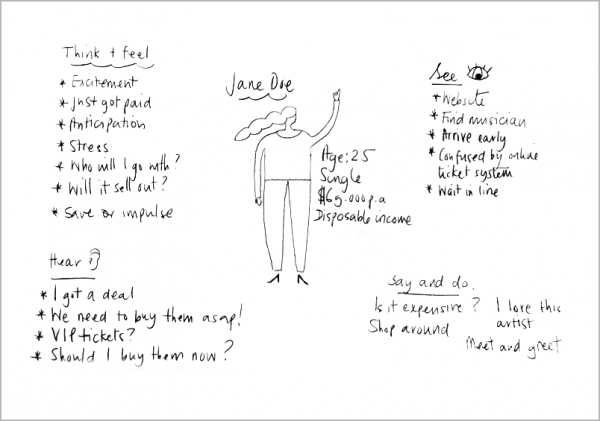 Think + feel
* Excitement
* Just got paid
* Anticipation
* Stress
* Who will I go with?
* Will it sell out?
* Save or impulse
Jane Doe
Age: 25
Single
$69.000 p.a
Disposable income
See
* Website
* Find musician
* Arrive early
* Confused by online
ticket system
* Wait in line
Hear
* I got a deal
* We need to buy them asap!
* VIP tickets?
* Should I buy them now?
Say and do.
Is it expensive?
Shop around
I love this
artist
Meet and greet